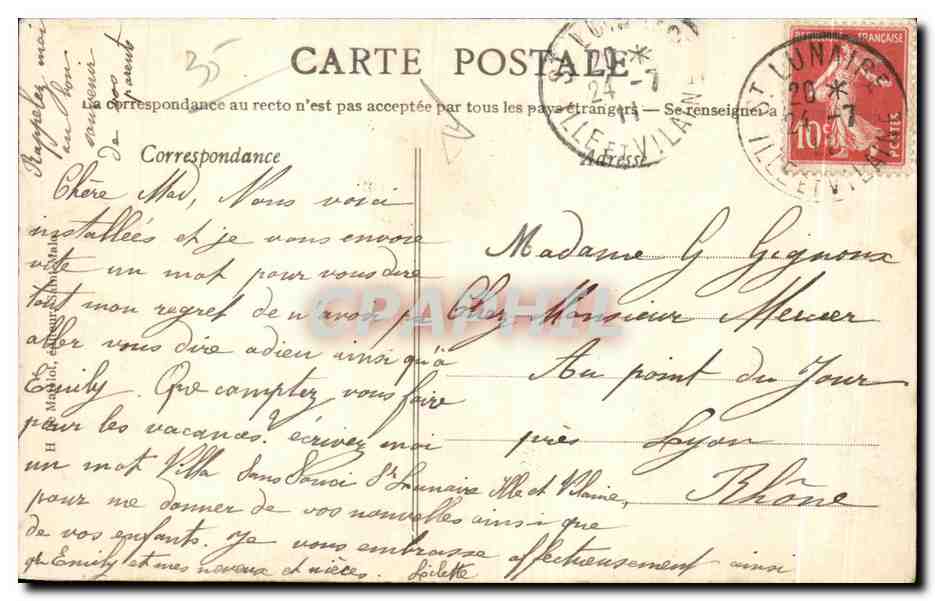 CARTE POSTALE
La correspondance au recto n'est pas acceptée par tous les pays étrangers — Se renseigner à
Correspondance
Adresse
Rappelez moi
au bon
souvenir
de vos
parents
35
Chère Mad, Nous voici
installées et je vous envoie
vite un mot pour vous dire
tout mon regret de n'avoir pu
aller vous dire adieu ainsi qu'à
Emily. Que comptez vous faire
pour les vacances. écrivez moi
un mot Villa Sans Souci St Lunaire Ille et Vilaine,
pour me donner de vos nouvelles ainsi que
de vos enfants. Je vous embrasse affectueusement ainsi
qu'Emily et mes neveux et nièces.
Madame G Gignoux
Chez Monsieur Mercier
Au point du Jour
près Lyon
Rhône
ST LUNAIRE
20 *
24 -7
11
ILLE ET VILAINE
ST LUNAIRE
20 *
24 -7
ILLE ET VILAINE
REPUBLIQUE FRANÇAISE
10c
POSTES
éditeur, Saint-Malo
CPAPHIL